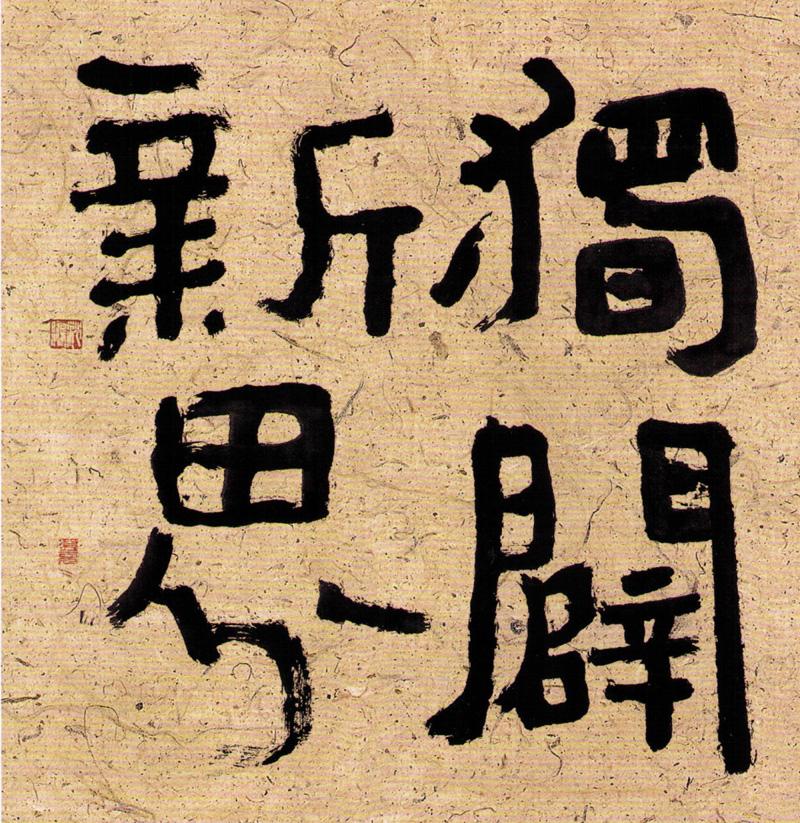 獨闢
新思